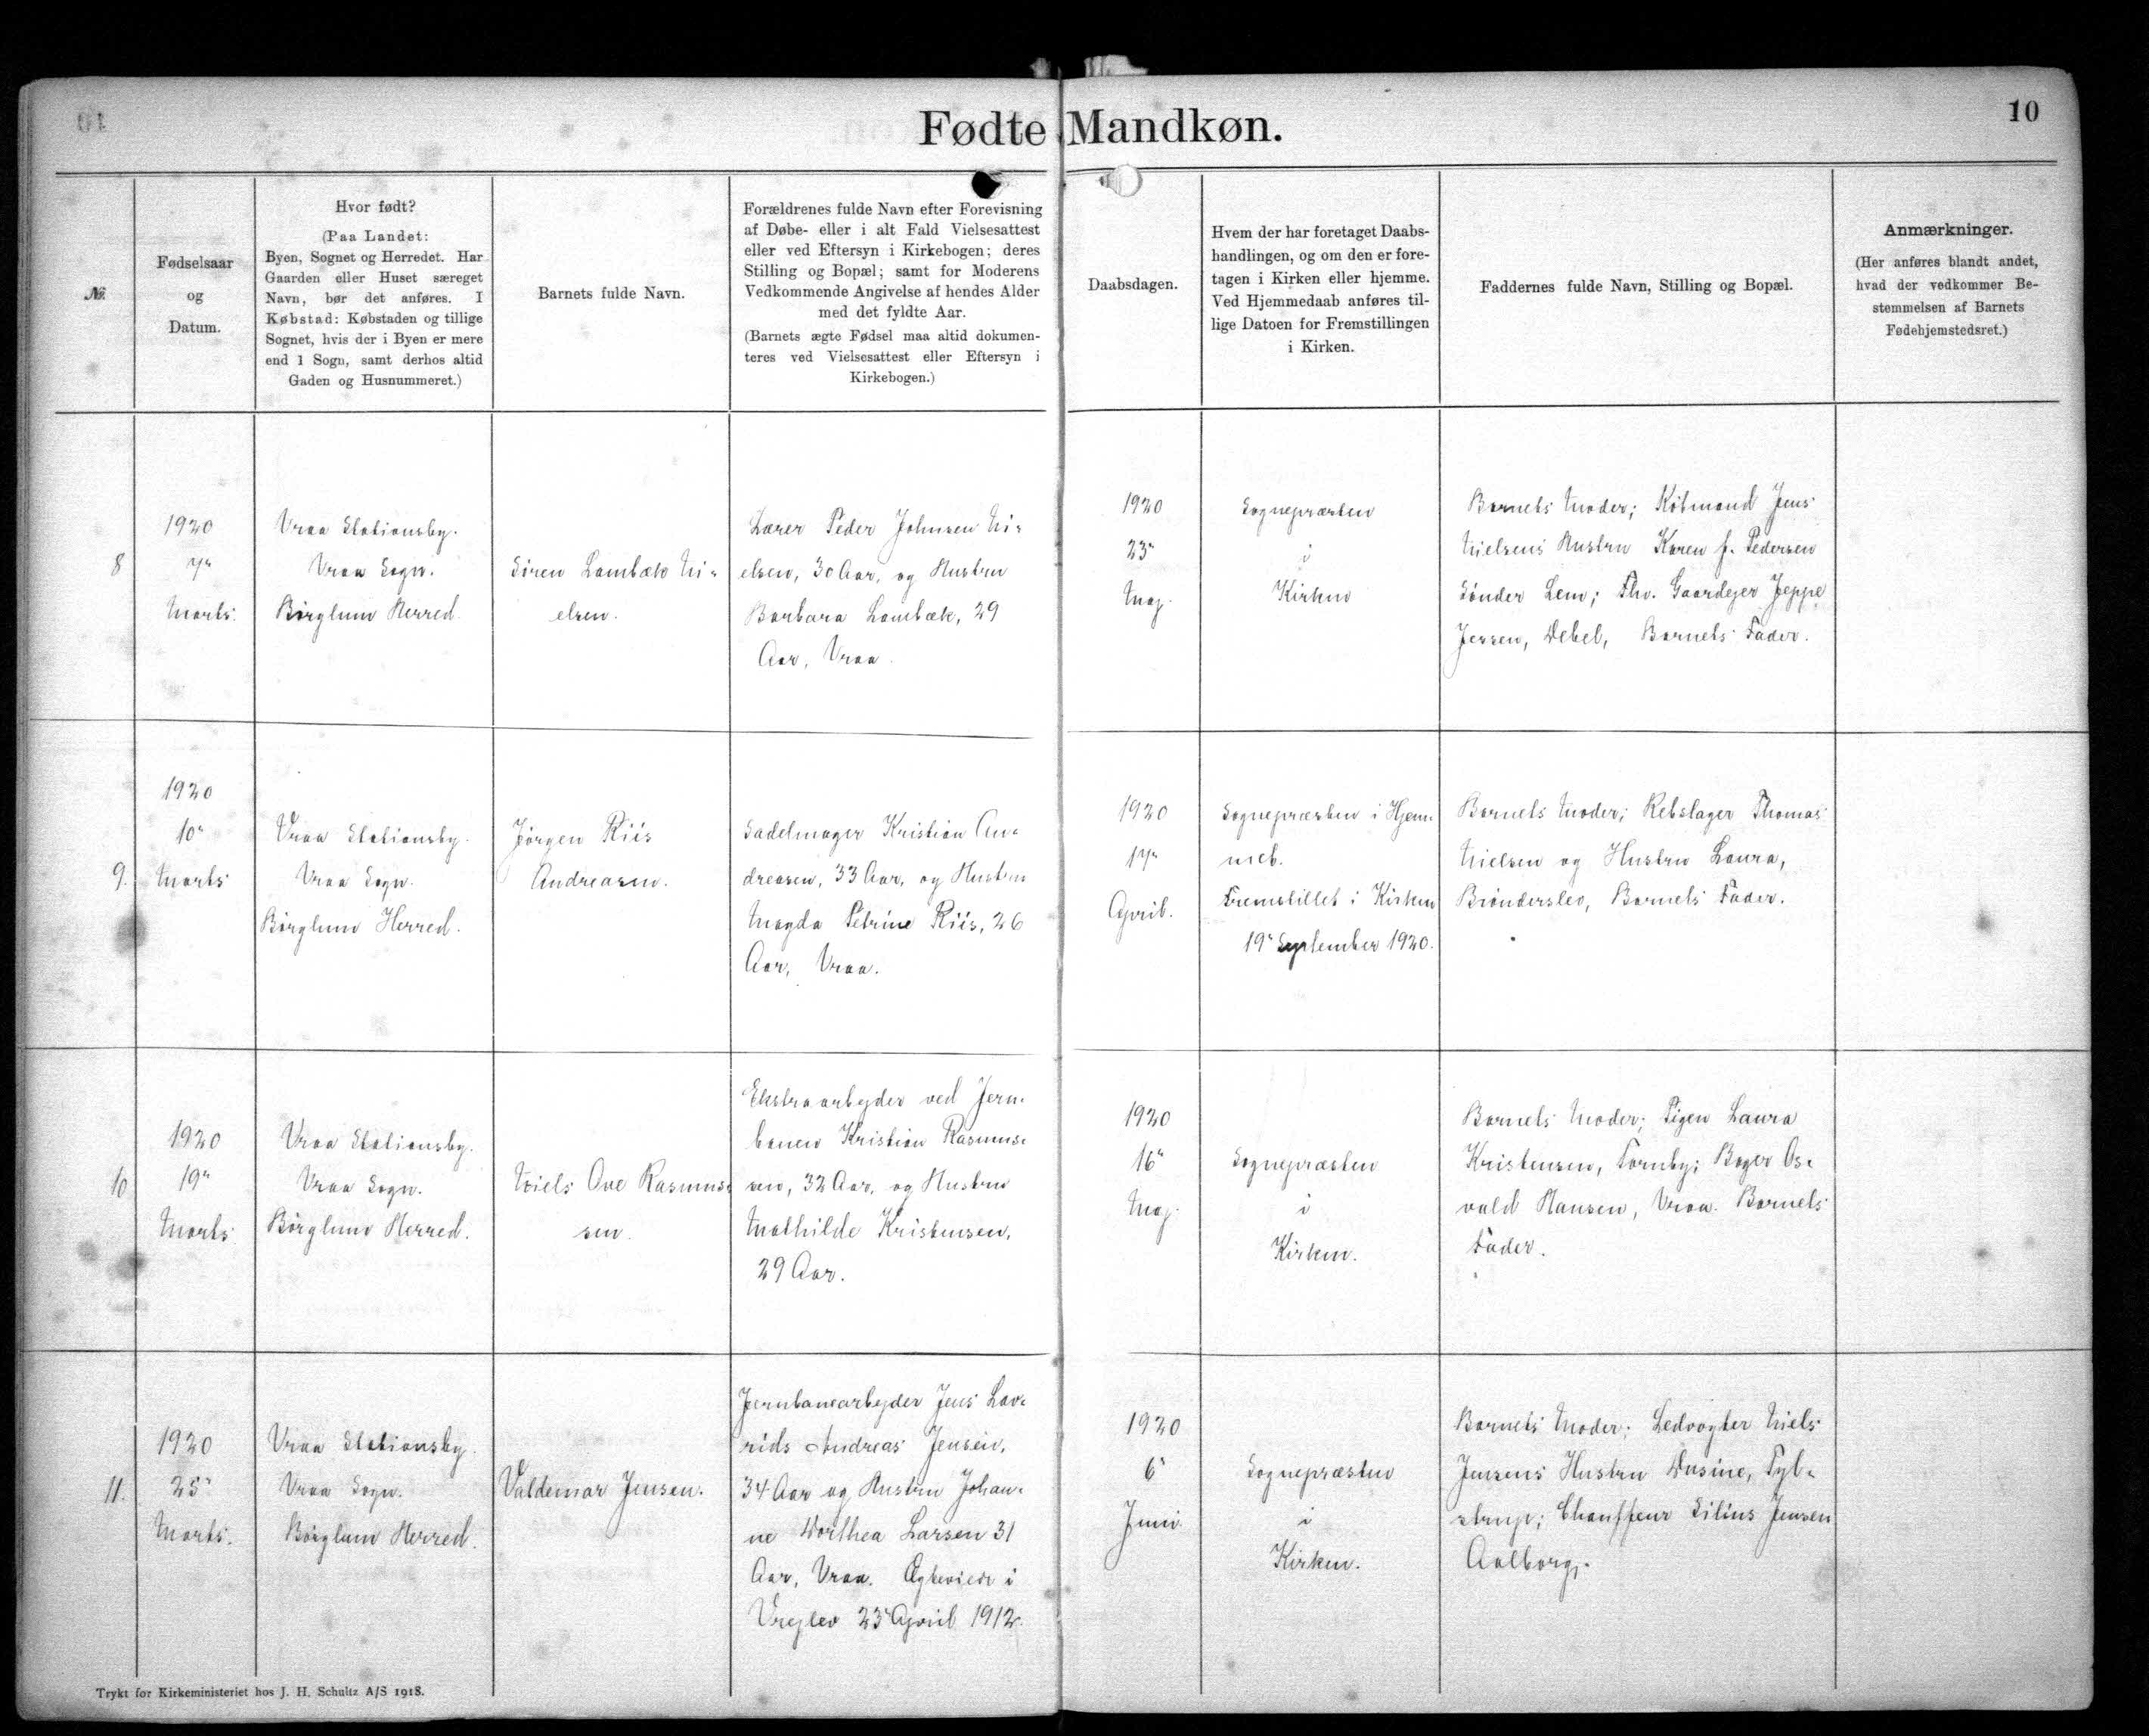 Fødte Mandkøn.
10
№
Fødselsaar
og
Datum.
Hvor født?
(Paa Landet:
Byen, Sognet og Herredet. Har
Gaarden eller Huset særeget
Navn, bør det anføres. I
Købstad: Købstaden og tillige
Sognet, hvis der i Byen er mere
end 1 Sogn, samt derhos altid
Gaden og Husnummeret.)
Barnets fulde Navn.
Forældrenes fulde Navn efter Forevisning
af Døbe- eller i alt Fald Vielsesattest
eller ved Eftersyn i Kirkebogen; deres
Stilling og Bopæl; samt for Moderens
Vedkommende Angivelse af hendes Alder
med det fyldte Aar.
(Barnets ægte Fødsel maa altid dokumen-
teres ved Vielsesattest eller Eftersyn i
Kirkebogen.)
Daabsdagen.
Hvem der har foretaget Daabs-
handlingen, og om den er fore-
tagen i Kirken eller hjemme.
Ved Hjemmedaab anføres til-
lige Datoen for Fremstillingen
i Kirken.
Faddernes fulde Navn, Stilling og Bopæl.
Anmærkninger.
(Her anføres blandt andet,
hvad der vedkommer Be-
stemmelsen af Barnets
Fødehjemstedsret.)
8
1920
7"
Marts.
Vraa Stationsby.
Vraa Sogn.
Børglum Herred.
Sören Lambæk Ni=
elsen.
Lærer Peder Johnsen Ni=
elsen, 30 Aar, og Hustru
Barbara Lambæk, 29
Aar, Vraa.
1920
23"
Maj.
Sognepræsten
i
Kirken
Barnets Moder; Købmand Jens
Nielsens Hustru Karen f. Pedersen
Sönder Lem; Fhv. Gaardejer Jeppe
Jessen, Debel, Barnets Fader.
9.
1920
10"
Marts
Vraa Stationsby.
Vraa Sogn.
Börglum Herred.
Jörgen Riis
Andreasen.
Sadelmager Kristian An=
dreasen, 33 Aar, og Hustru
Magda Petrine Riis, 26
Aar, Vraa.
1920
17"
April.
Sognepræsten i Hjem=
met.
Fremstillet i Kirken
19" September 1920.
Barnets Moder; Rebslager Thomas
Nielsen og Hustru Laura,
Brönderslev, Barnets Fader.
10
1920
19"
Marts
Vraa Stationsby.
Vraa Sogn.
Börglum Herred.
Niels Ove Rasmus=
sen.
Ekstraarbejder ved Jern=
banen Kristian Rasmus=
sen, 32 Aar, og Hustru
Mathilde Kristensen,
29 Aar.
1920
16"
Maj.
Sognepræsten
i
Kirken.
Barnets Moder; Pigen Laura
Kristensen, Tornby; Bager Os=
vald Hansen, Vraa. Barnets
Fader.
11.
1920
25"
Marts.
Vraa Stationsby.
Vraa Sogn.
Börglum Herred.
Valdemar Jensen.
Jernbanearbejder Jens Lav=
rids Andreas Jensen,
34 Aar og Hustru Johan=
ne Dorthea Larsen 31
Aar, Vraa. Ægteviede i
Vrejlev 23" April 1912.
1920
6"
Juni.
Sognepræsten
i
Kirken.
Barnets Moder; Ledvogter Niels
Jensens Hustru Dusine, Tyl=
strup; Chauffeur Silius Jensen
Aalborg.
Trykt for Kirkeministeriet hos J. H. Schultz A/S 1918.